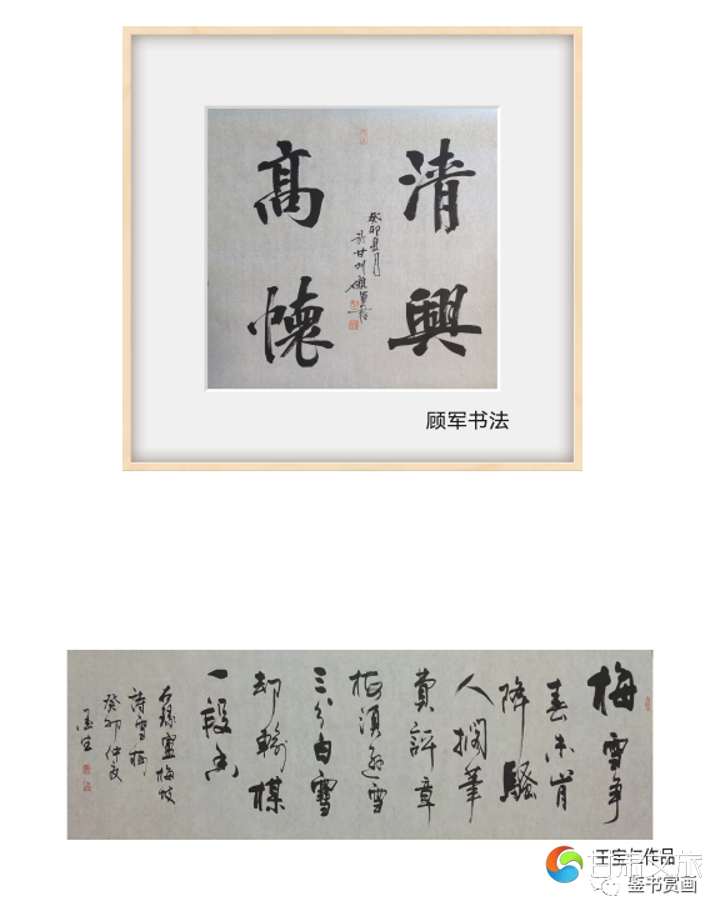 清興
高懷
癸卯且月
於甘州顧軍書
顾军书法
梅雪争
春未肯
降騷
人擱筆
費評章
梅須遜雪
三分白雪
却輸楳
一段香
右録盧梅坡
詩雪梅
癸卯仲夏
王宝仁作品
甘肃文旅
鉴书赏画